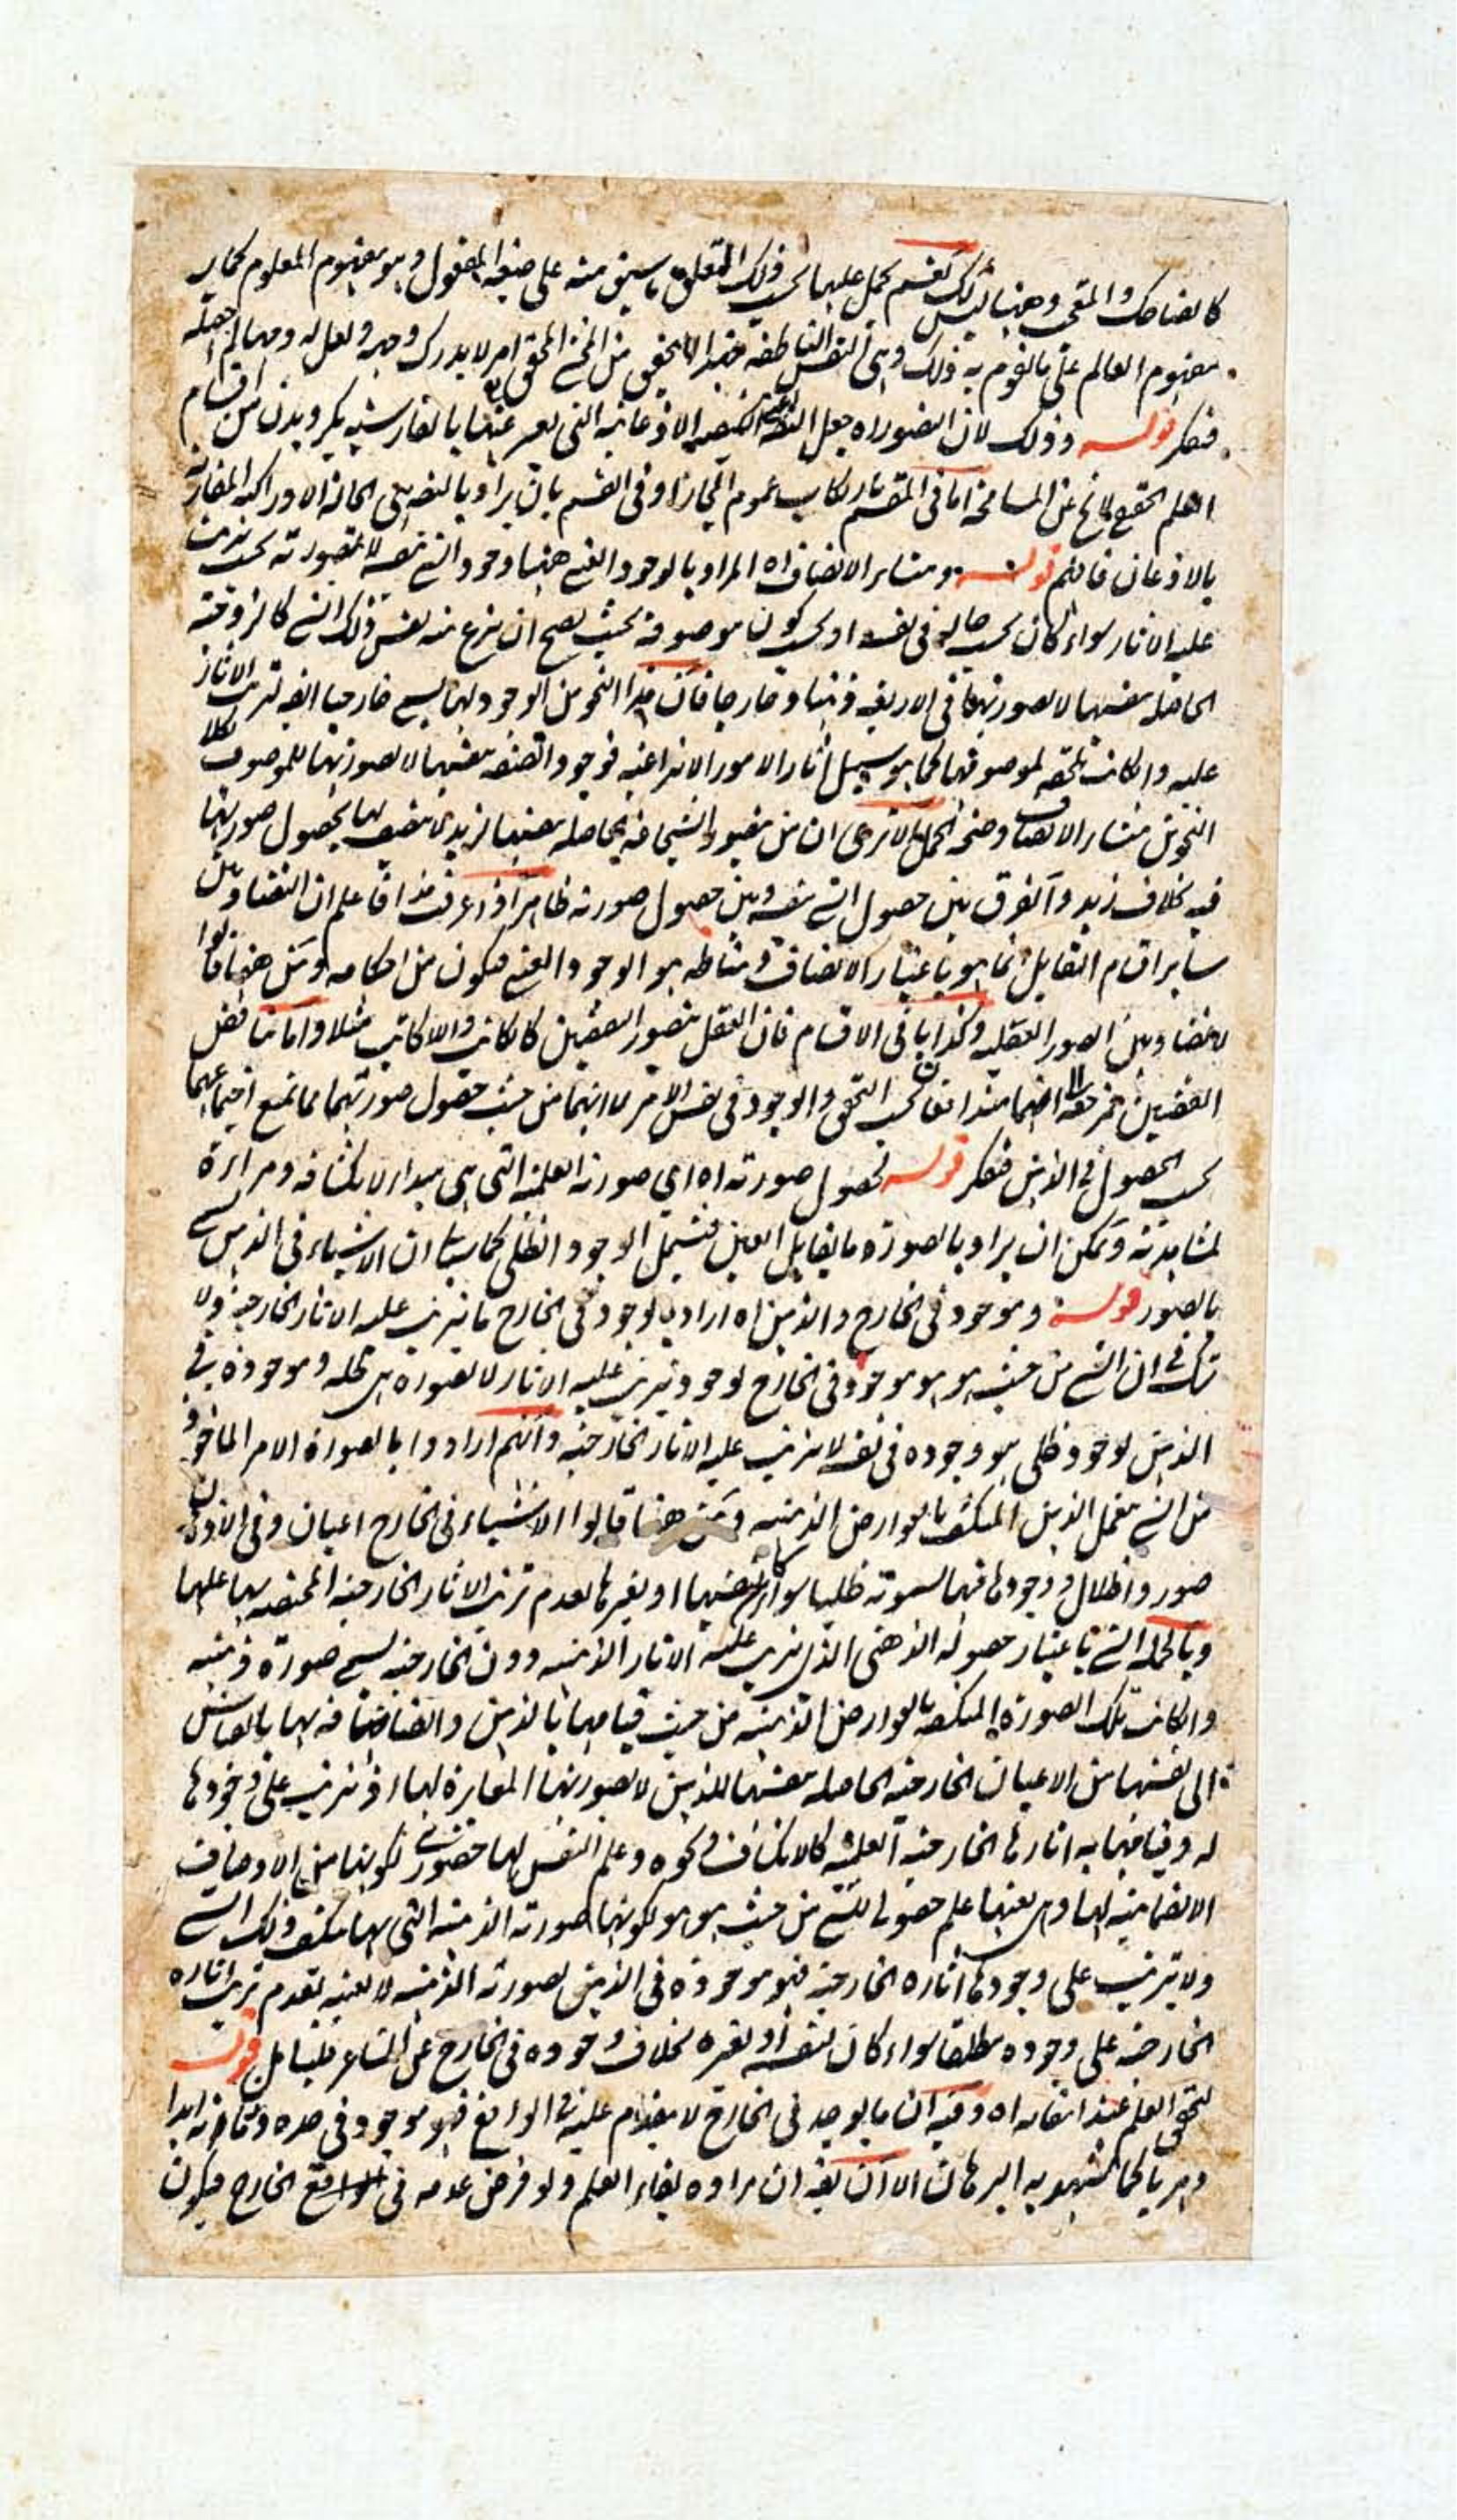 كالضاحك والمتعجب وههنا ليس كذلك تقسم يحمل عليها بحسب ذلك التعلق ما سبق منه على صيغة المفعول وهو مفهوم المعلوم كما
مفهوم العالم على ما يقوم به ذلك وهي النفس الناطقة
فتفكر قوله وذلك لان التصور اه جعل الاذعانية التي يعبر عنها بالفارسية بگرويدن من اقسام
العلم لا يخ عن المسامحة اما في المقسم بارتكاب عموم المجاز او في القسم بان يراد بالتصديق الحالة الادراكية المقارنة
بالاذعان فافهم قوله ومنشأ الاتصاف اه المراد بالوجود العيني ههنا وجود الشيء بنفسه لا بصورته بحيث يترتب
عليه الاثار سواء كان بحسب حاله في نفسه او بحسب كون موصوفه بحيث يصح ان ينتزع عنه نفس ذلك الشيء كالزوجية
الحاصلة بنفسها لا بصورتها في الاربعة ذهنا وخارجا فان هذا النحو من الوجود لها يسمى خارجيا ايضا لترتب الاثار
عليه وان كانت لاحقة لموصوفها كما هو سبيل اثار الامور الانتزاعية فوجود الصفة بنفسها لا بصورتها للموصوف بكلا
النحوين منشأ الاتصاف وصحة الحمل الا ترى ان من تصور الشجاعة الحاصلة بنفسها لزيد لا يتصف بها بحصول صورتها
فيه بخلاف زيد والفرق بين حصول الشيء بنفسه وبين حصول صورته ظاهر اذا عرفت هذا فاعلم ان التضاد وبين
سائر اقسام التقابل انما هو باعتبار الاتصاف ومناطه هو الوجود العيني فيكون من احكامه ومن ههنا قالوا
لا تضاد بين الصور العقلية وكذا باقي الاقسام فان العقل يتصور النقيضين كالكاتب واللاكاتب مثلا واما تناقض
القضيتين بحسب التحقق والوجود في نفس الامر لا انهما من حيث حصول صورتهما مما يمنع اجتماعهما
بحسب الحصول في الذهن فتفكر قوله بحصول صورته اه اي صورته العلمية التي هي مبدأ لانكشافه ومرآة
لمشاهدته ويمكن ان يراد بالصورة ما يقابل العين فيشمل الوجود الظلي كما سيأتي ان الاشياء في الذهن
بالصور قوله وموجود في الخارج والذهن اه اراد بالوجود في الخارج ما يترتب عليه الاثار الخارجية ولا
شك في ان الشيء من حيث هو هو موجود في الخارج لوجود يترتب عليه الاثار لا بصورة هي ظله وموجودة في
الذهن لوجود ظلي هو وجوده في نفسه لا يترتب عليه الاثار الخارجية وانهم ارادوا بالصورة الامر الماخوذ
من الشيء بعمل الذهن المكتنف بالعوارض الذهنية ومن ههنا قالوا الاشياء في الخارج اعيان وفي الاذهان
صور واظلال ووجودها فيها يسمونه ظليا سواء كان بنفسها او بغيرها لعدم ترتب الاثار الخارجية المختصة بها عليها
وبالجملة الشيء باعتبار حصوله الذهني الذي يترتب عليه الاثار الذهنية دون الخارجية يسمى صورة ذهنية
وان كانت تلك الصورة المكتنفة بالعوارض الذهنية من حيث قيامها بالذهن واتصافه بها بالقياس
الى نفسها من الاعيان الخارجية الحاصلة بنفسها للذهن لا بصورتها المغايرة لها اذ يترتب على وجودها
له وقيامها به اثارها الخارجية العلمية كالانكشاف ونحوه وعلم النفس بها حضوري لكونها من الاوصاف
الانضمامية لها وهي بعينها علم حصولي للشيء من حيث هو هو لكونها صورته الذهنية التي بها ينكشف ذلك الشيء
ولا يترتب على وجودها اثاره الخارجية فهو موجود في الذهن بصورته الذهنية لا بعينه لعدم ترتب اثاره
الخارجية على وجوده مطلقا سواء كان بنفسه او بغيره بخلاف وجوده في الخارج عن المشاعر فليتأمل قوله
لتحقق العلم عند انتفائه اه وفيه ان ما يوجد في الخارج لا ينعدم عليه في الواقع فهو موجود في حده وزمانه ابدا
يشهد به البرهان الا ان يقال ان مراده بقاء العلم ولو فرض عدمه في الواقع الخارج فيكون